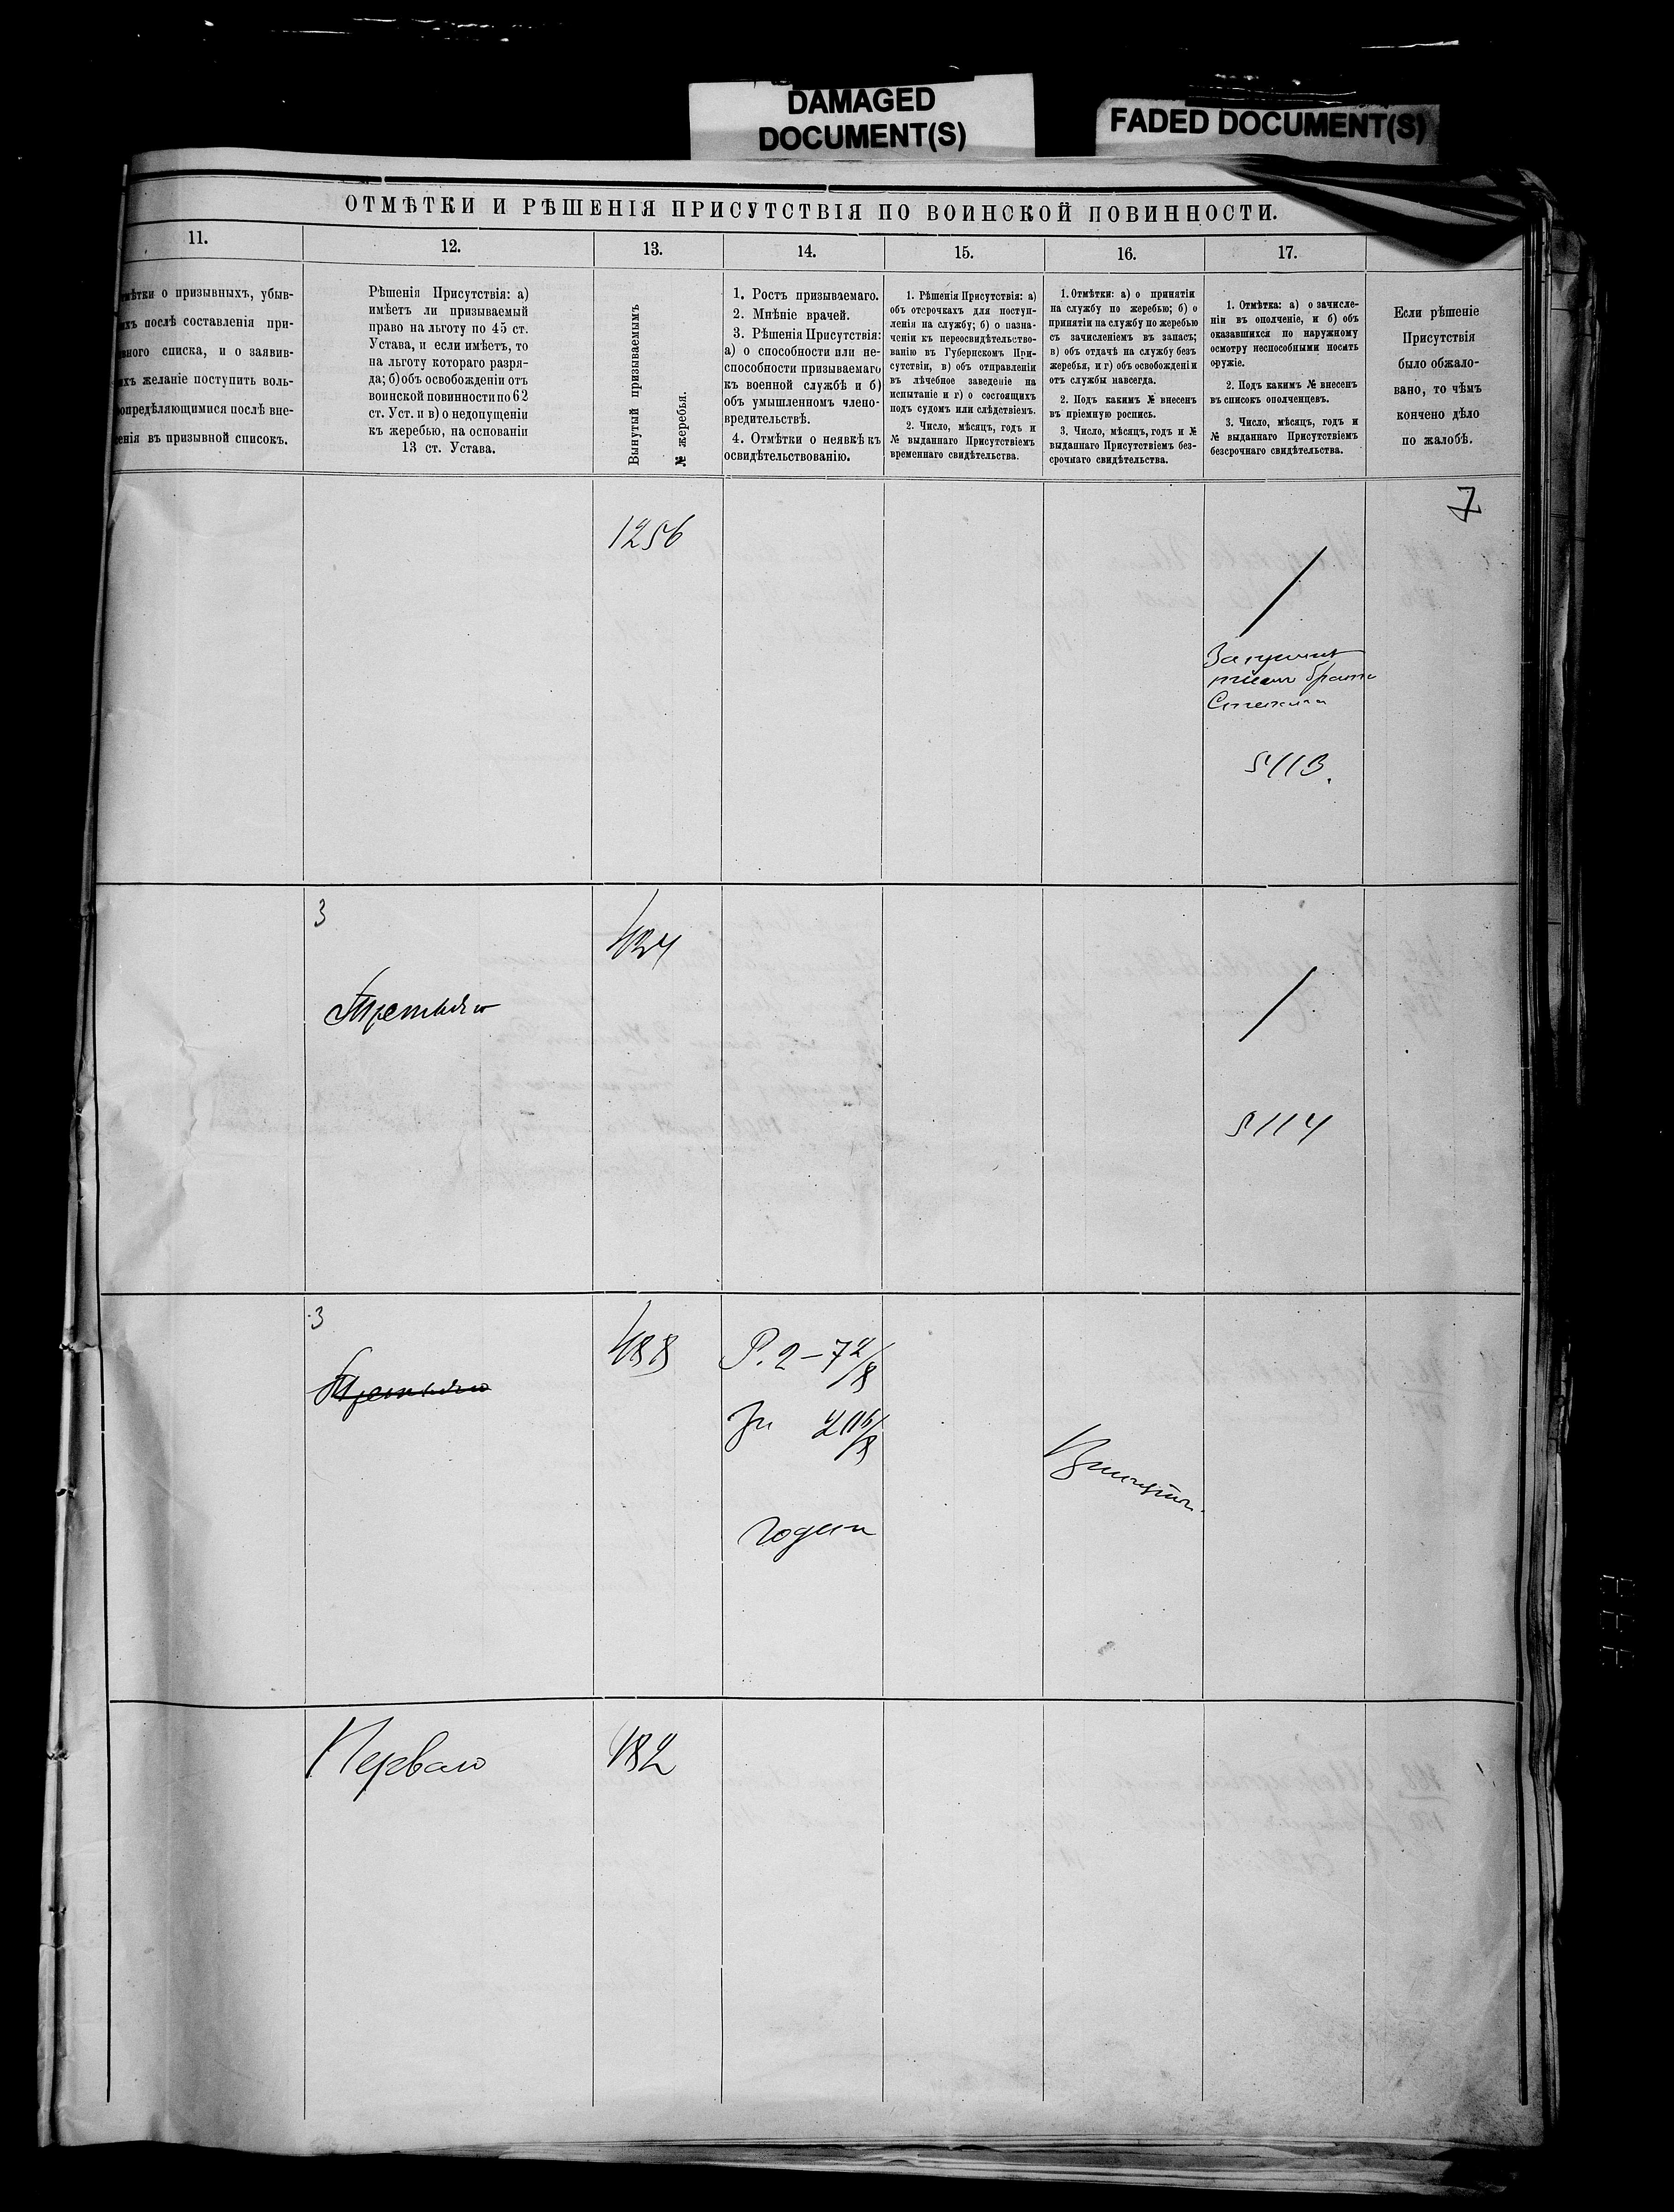 DAMAGED
DOCUMENT(S)
FADED DOCUMENT(S)
ОТМѢТКИ И РѢШЕНІЯ ПРИСУТСТВІЯ ПО ВОИНСКОЙ ПОВИННОСТИ.
11.
12.
13.
14.
15.
16.
17.
о призывныхъ, убыв-
послѣ составленія при-
списка, и о заявив-
желаніе поступить воль-
послѣ вне-
въ призывной списокъ.
Рѣшенія Присутствія: а)
имѣетъ ли призываемый
право на льготу по 45 ст.
Устава, и если имѣетъ, то
на льготу котораго разря-
да; б) объ освобожденіи отъ
воинской повинности по 62
ст. Уст. и в) о недопущеніи
къ жеребью, на основаніи
13 ст. Устава.
Вынутый призываемымъ
№ жеребья.
1. Ростъ призываемаго.
2. Мнѣніе врачей.
3. Рѣшенія Присутствія:
а) о способности или не-
способности призываемаго
къ военной службѣ и б)
объ умышленномъ члено-
вредительствѣ.
4. Отмѣтки о неявкѣ къ
освидѣтельствованію.
1. Рѣшенія Присутствія: а)
объ отсрочкахъ для поступ-
ленія на службу; б) о назна-
ченіи къ переосвидѣтельство-
ванію въ Губернскомъ При-
сутствіи, в) объ отправленіи
въ лѣчебное заведеніе на
испытаніе и г) о состоящихъ
подъ судомъ или слѣдствіемъ.
2. Число, мѣсяцъ, годъ и
№ выданнаго Присутствіемъ
временнаго свидѣтельства.
1. Отмѣтки: а) о принятіи
на службу по жеребью; б) о
принятіи на службу по жеребью
съ зачисленіемъ въ запасъ;
в) объ отдачѣ на службу безъ
жеребья, и г) объ освобожденіи
отъ службы навсегда.
2. Подъ какимъ № внесенъ
въ пріемную роспись.
3. Число, мѣсяцъ, годъ и №
выданнаго Присутствіемъ без-
срочнаго свидѣтельства.
1. Отмѣтка: а) о зачисле-
ніи въ ополченіе, и б) объ
оказавшихся по наружному
осмотру неспособными носить
оружіе.
2. Подъ какимъ № внесенъ
въ списокъ ополченцевъ.
3. Число, мѣсяцъ, годъ и
№ выданнаго Присутствіемъ
безсрочнаго свидѣтельства.
Если рѣшеніе
Присутствія
было обжало-
вано, то чѣмъ
кончено дѣло
по жалобѣ.
7
1256
брата
5113.
3
434
Третьяго
5114
3
488
Третьяго
Р. 2 – 7
годен
Перваго
482